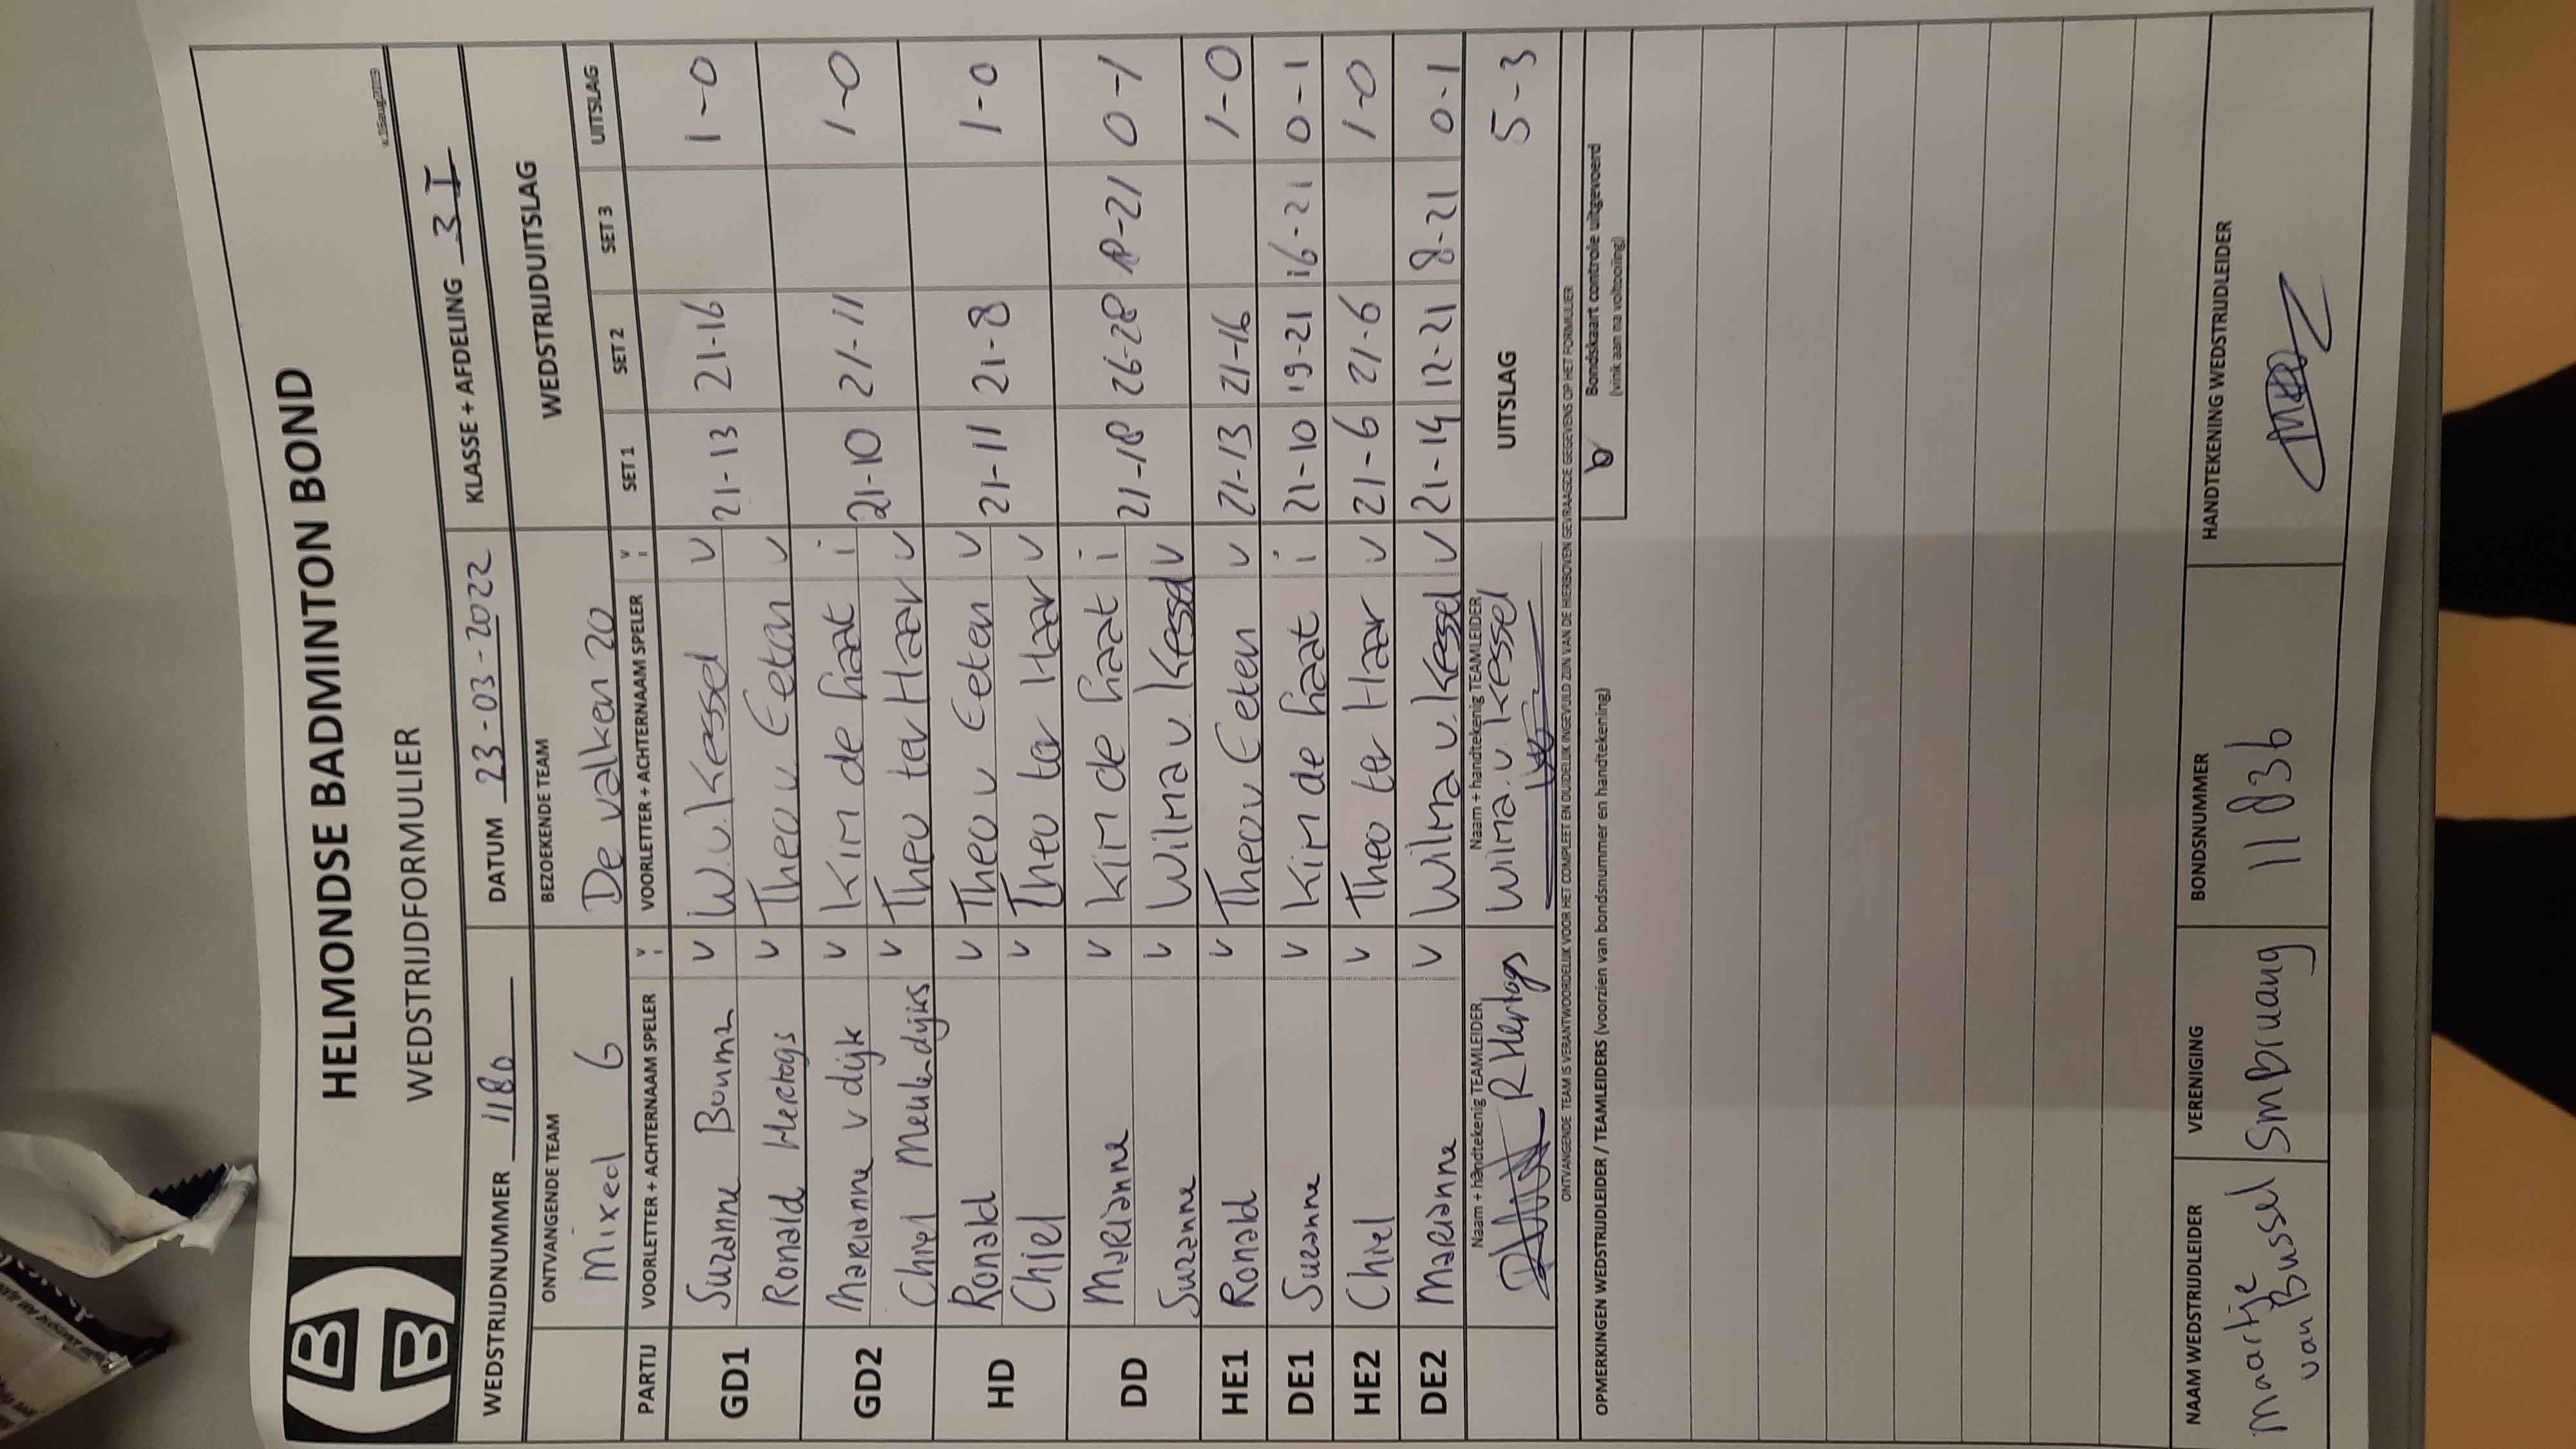 HELMONDSE BADMINTON BOND
WEDSTRIJDFORMULIER
WEDSTRIJDNUMMER 1180 DATUM 23-03-2022 KLASSE + AFDELING 3 I
ONTVANGENDE TEAM BEZOEKENDE TEAM WEDSTRIJDUITSLAG
Mixed 6 De valken 20
PARTIJ VOORLETTER + ACHTERNAAM SPELER V I VOORLETTER + ACHTERNAAM SPELER V I SET 1 SET 2 SET 3 UITSLAG
GD1 Suzanne Bouma v W.v.Kessel v 21-13 21-16 1-0
Ronald Hertogs v Theo v Eeten v
GD2 Marianne v dijk v Kim de haat i 21-10 21-11 1-0
Chiel Meulendijks v Theo ter Haar v
HD Ronald v Theo v Eeten v 21-11 21-8 1-0
Chiel v Theo ter Haar v
DD Marianne v Kim de haat i 21-18 26-28 18-21 0-1
Suzanne v Wilma v Kessel v
HE1 Ronald v Theo v Eeten v 21-13 21-16 1-0
DE1 Suzanne v Kim de haat i 21-10 19-21 16-21 0-1
HE2 Chiel v Theo ter Haar v 21-6 21-6 1-0
DE2 Marianne v Wilma v. Kessel v 21-14 12-21 8-21 0-1
Naam + handtekenig TEAMLEIDER Naam + handtekenig TEAMLEIDER UITSLAG 5-3
R Hertogs Wilma.v.Kessel
ONTVANGENDE TEAM IS VERANTWOORDELIJK VOOR HET COMPLEET EN DUIDELIJK INGEVULD ZIJN VAN DE HIERBOVEN GEVRAAGDE GEGEVENS OP HET FORMULIER
OPMERKINGEN WEDSTRIJDLEIDER / TEAMLEIDERS (voorzien van bondsnummer en handtekening)
Bondskaart controle uitgevoerd
(vink aan na voltooiing)
NAAM WEDSTRIJDLEIDER VERENIGING BONDSNUMMER HANDTEKENING WEDSTRIJDLEIDER
Maartje van Bussel Smbruang 11836